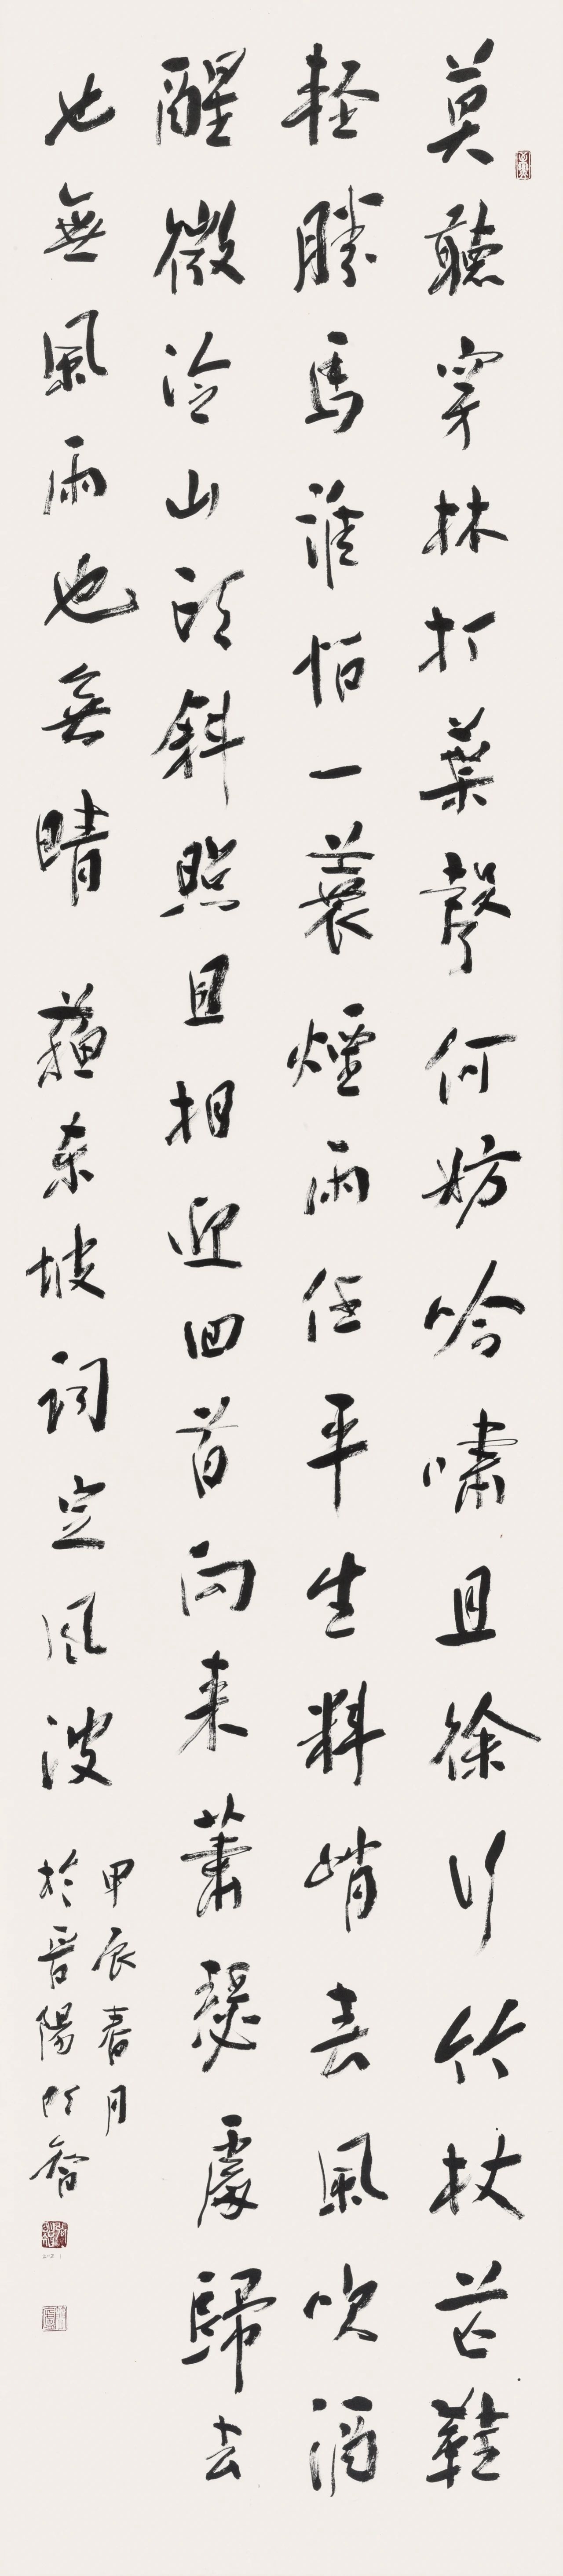 莫聽穿林打葉聲何妨吟嘯且徐行竹杖芒鞋
輕勝馬誰怕一蓑煙雨任平生料峭春風吹酒
醒微冷山頭斜照且相迎回首向来蕭瑟處歸去
也無風雨也無晴 蘇東坡詞定風波
甲辰春月
於晉陽 智